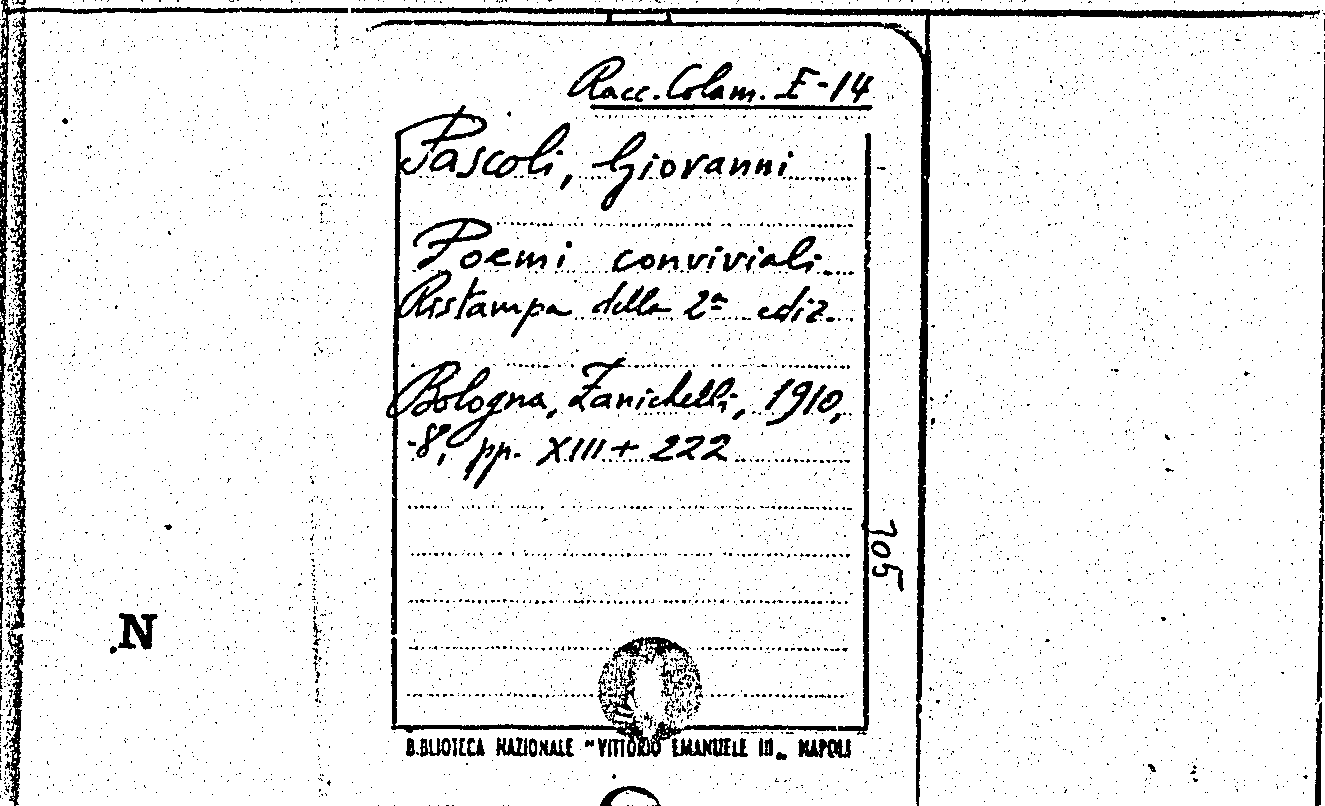 Racc. Colam. I-14
Pascoli, Giovanni
Poemi conviviali.
Ristampa della 2ª ediz.
Bologna, Zanichelli, 1910,
-8°, pp. XIII + 222
705
N
B.BLIOTECA NAZIONALE "VITTORIO EMANUELE III„ NAPOLI